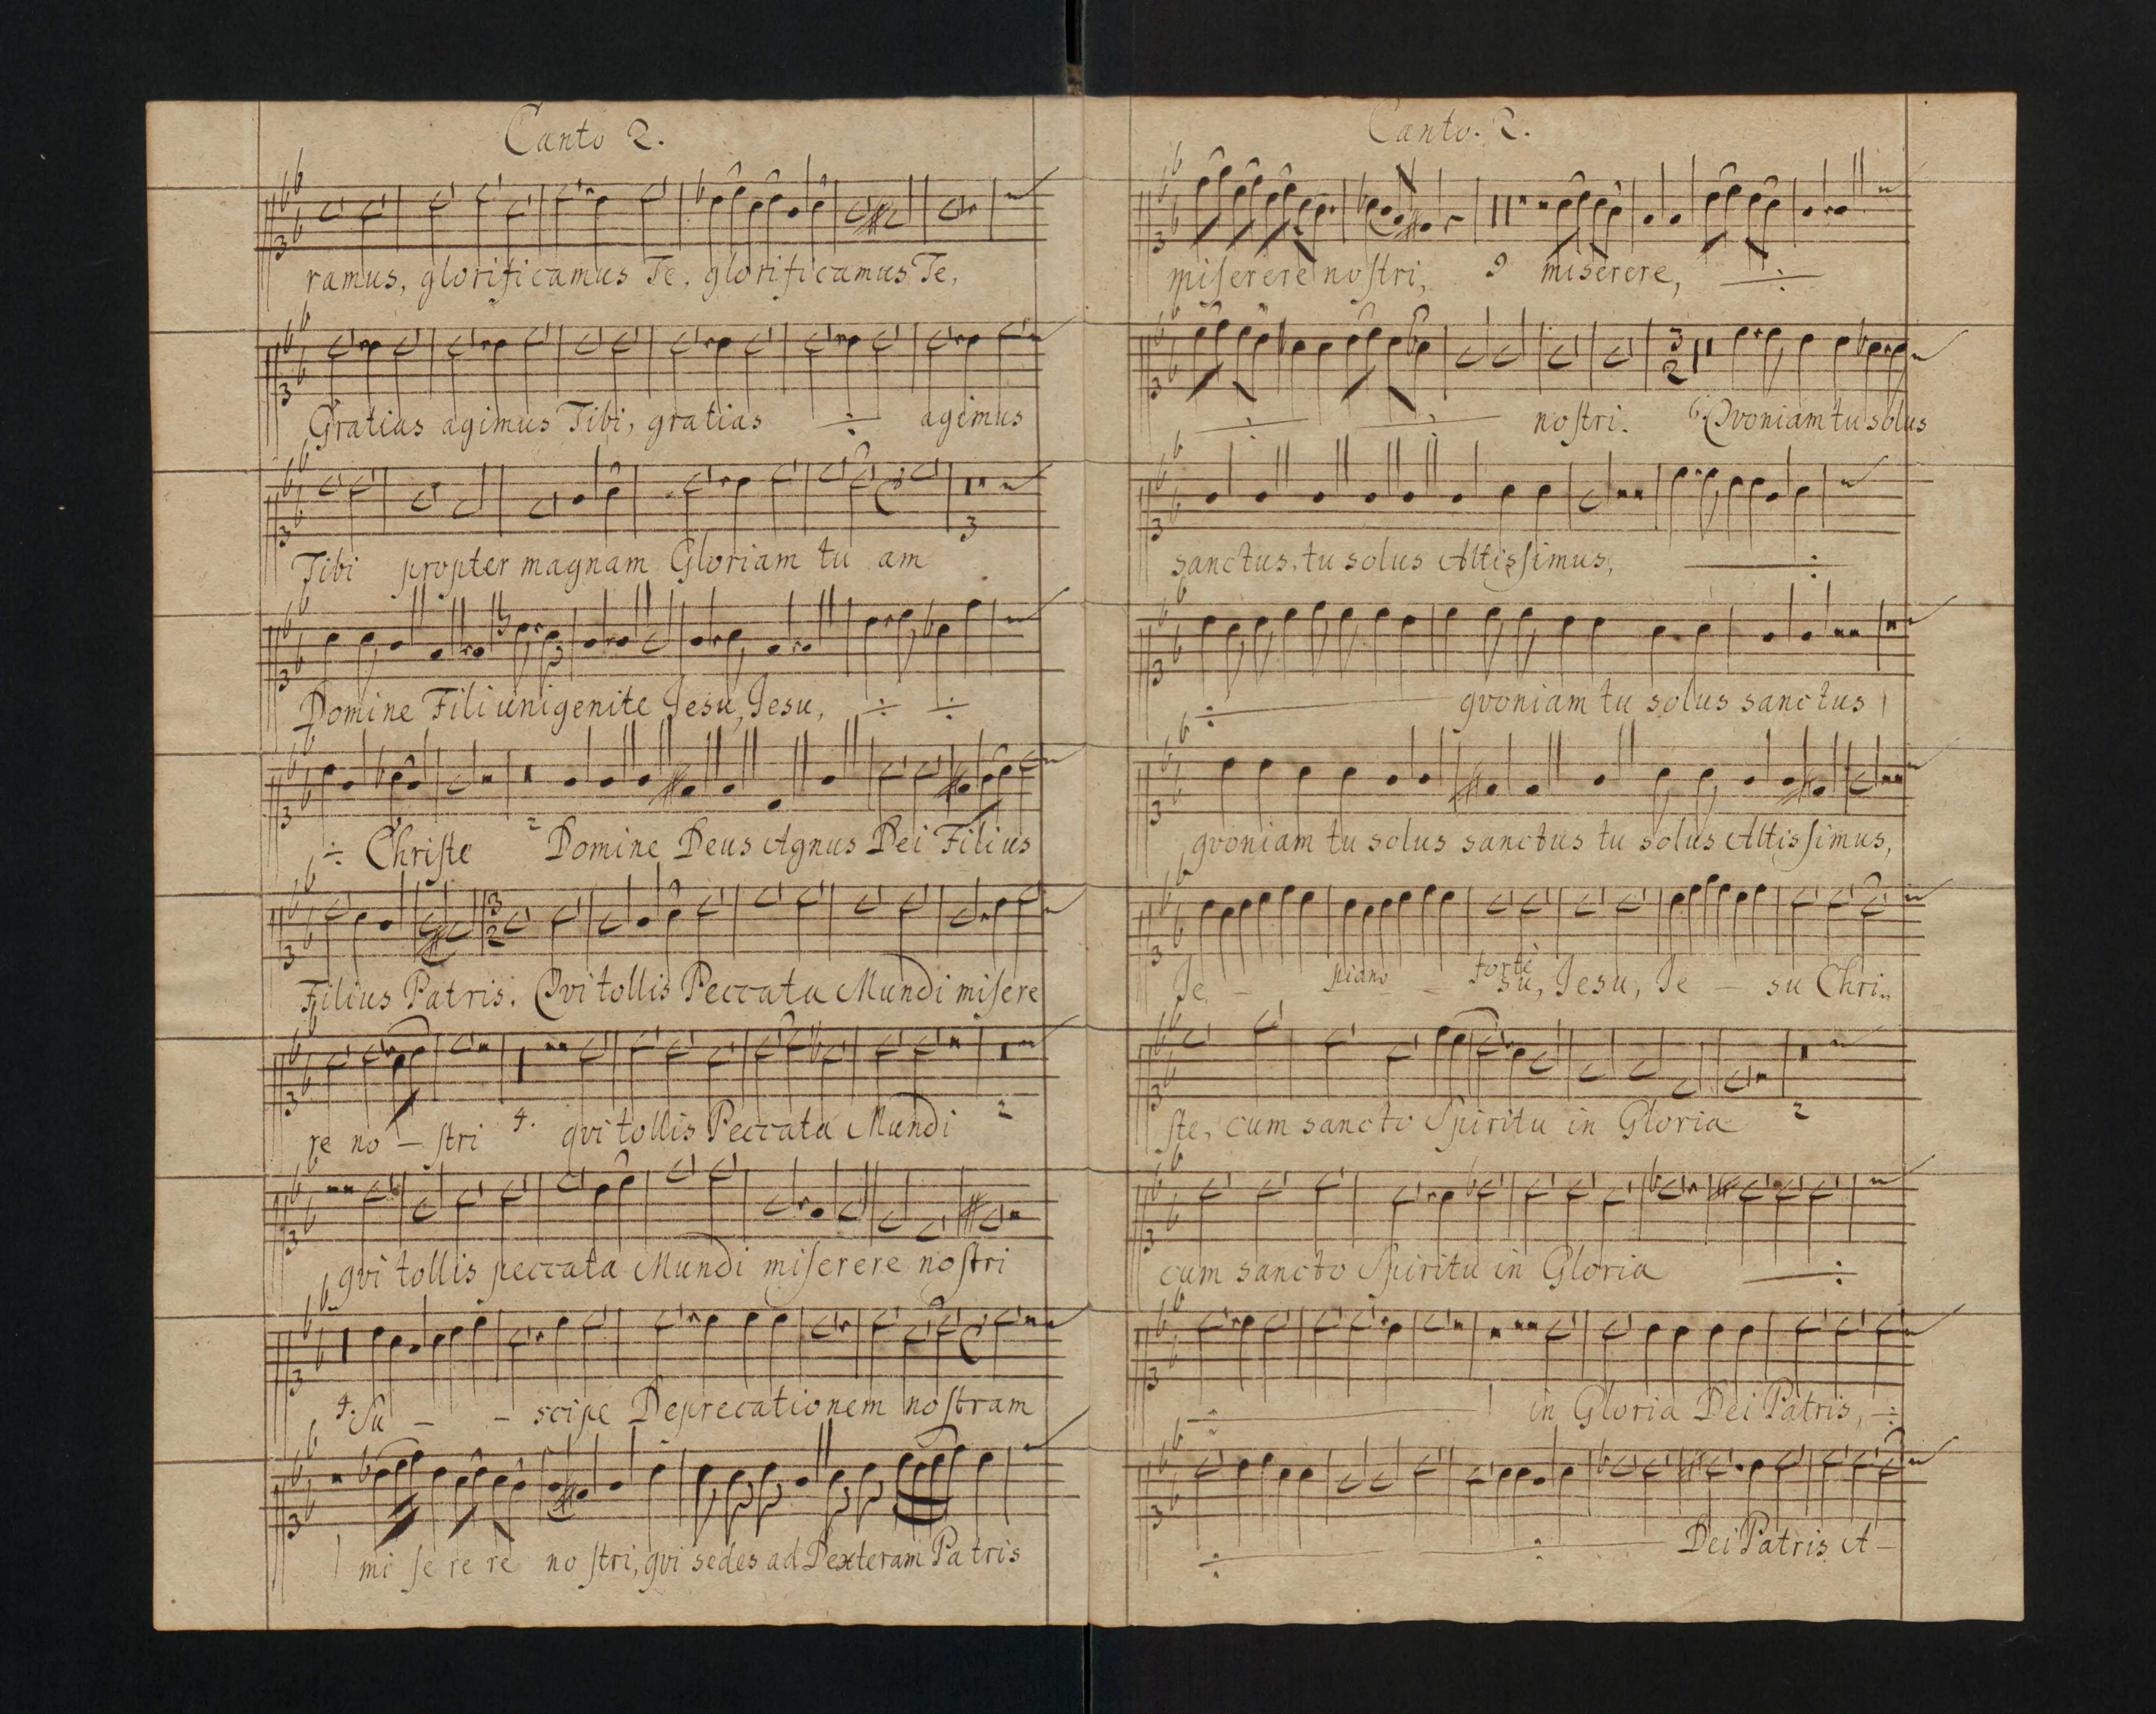 Canto 2.
ramus, glorificamus Te, glorificamus Te,
Gratias agimus Tibi, gratias ÷ agimus
Tibi propter magnam Gloriam tu am
3
Domine Fili unigenite Jesu, Jesu, ÷ ÷
÷ Chriſte 2 Domine Deus Agnus Dei Filius
Filius Patris. Qvi tollis Peccata Mundi miſere
re no – ſtri 4. qvi tollis Peccata Mundi 2
qvi tollis peccata Mundi miſerere noſtri
4. Su – – scipe Deprecationem noſtram
1 mi ſe re re no ſtri, qvi sedes ad Dexteram Pa tris
Canto. 2.
miſerere noſtri, 9 miserere, ÷
÷ ÷ noſtri. 6 Qvoniam tu solus
sanctus, tu solus Altisſimus, ÷
÷ qvoniam tu solus sanctus 1
qvoniam tu solus sanctus tu solus Altisſimus,
Je – piano – forte su, Jesu, Je – su Chri..
ſte, cum sancto Spiritu in Gloria 2
cum sancto Spiritu in Gloria ÷
÷ 1 in Gloria Dei Patris, ÷
÷ ÷ Dei Patris A –